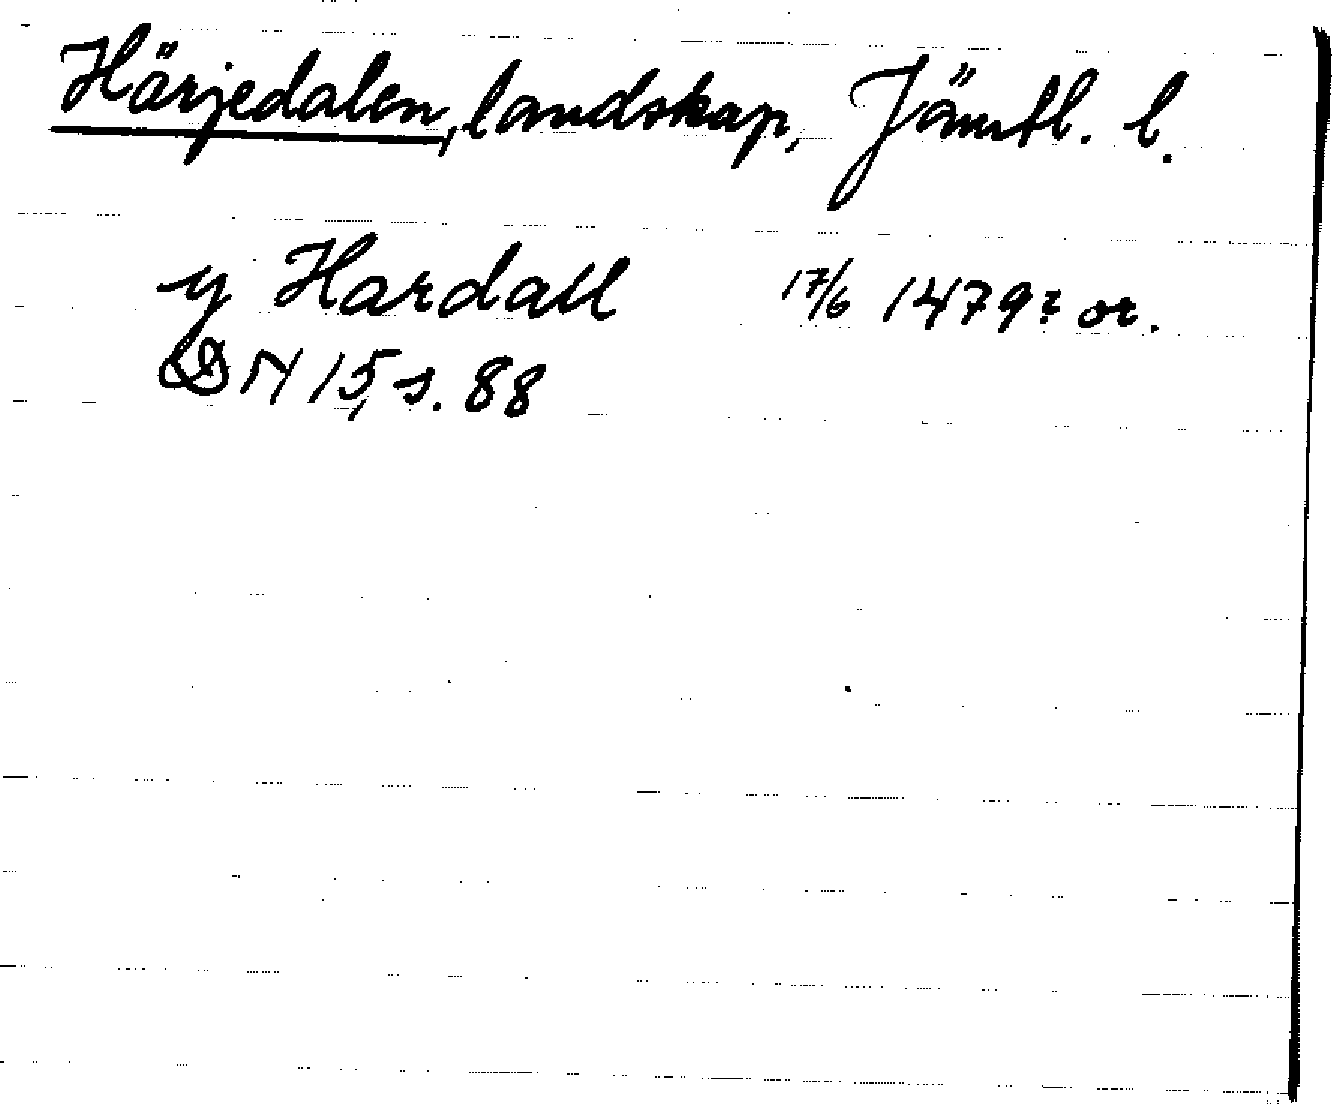 Härjedalen, landskap, Jämtl. l.
y Hardall 17/6 1479? or.
DN 15, s. 88